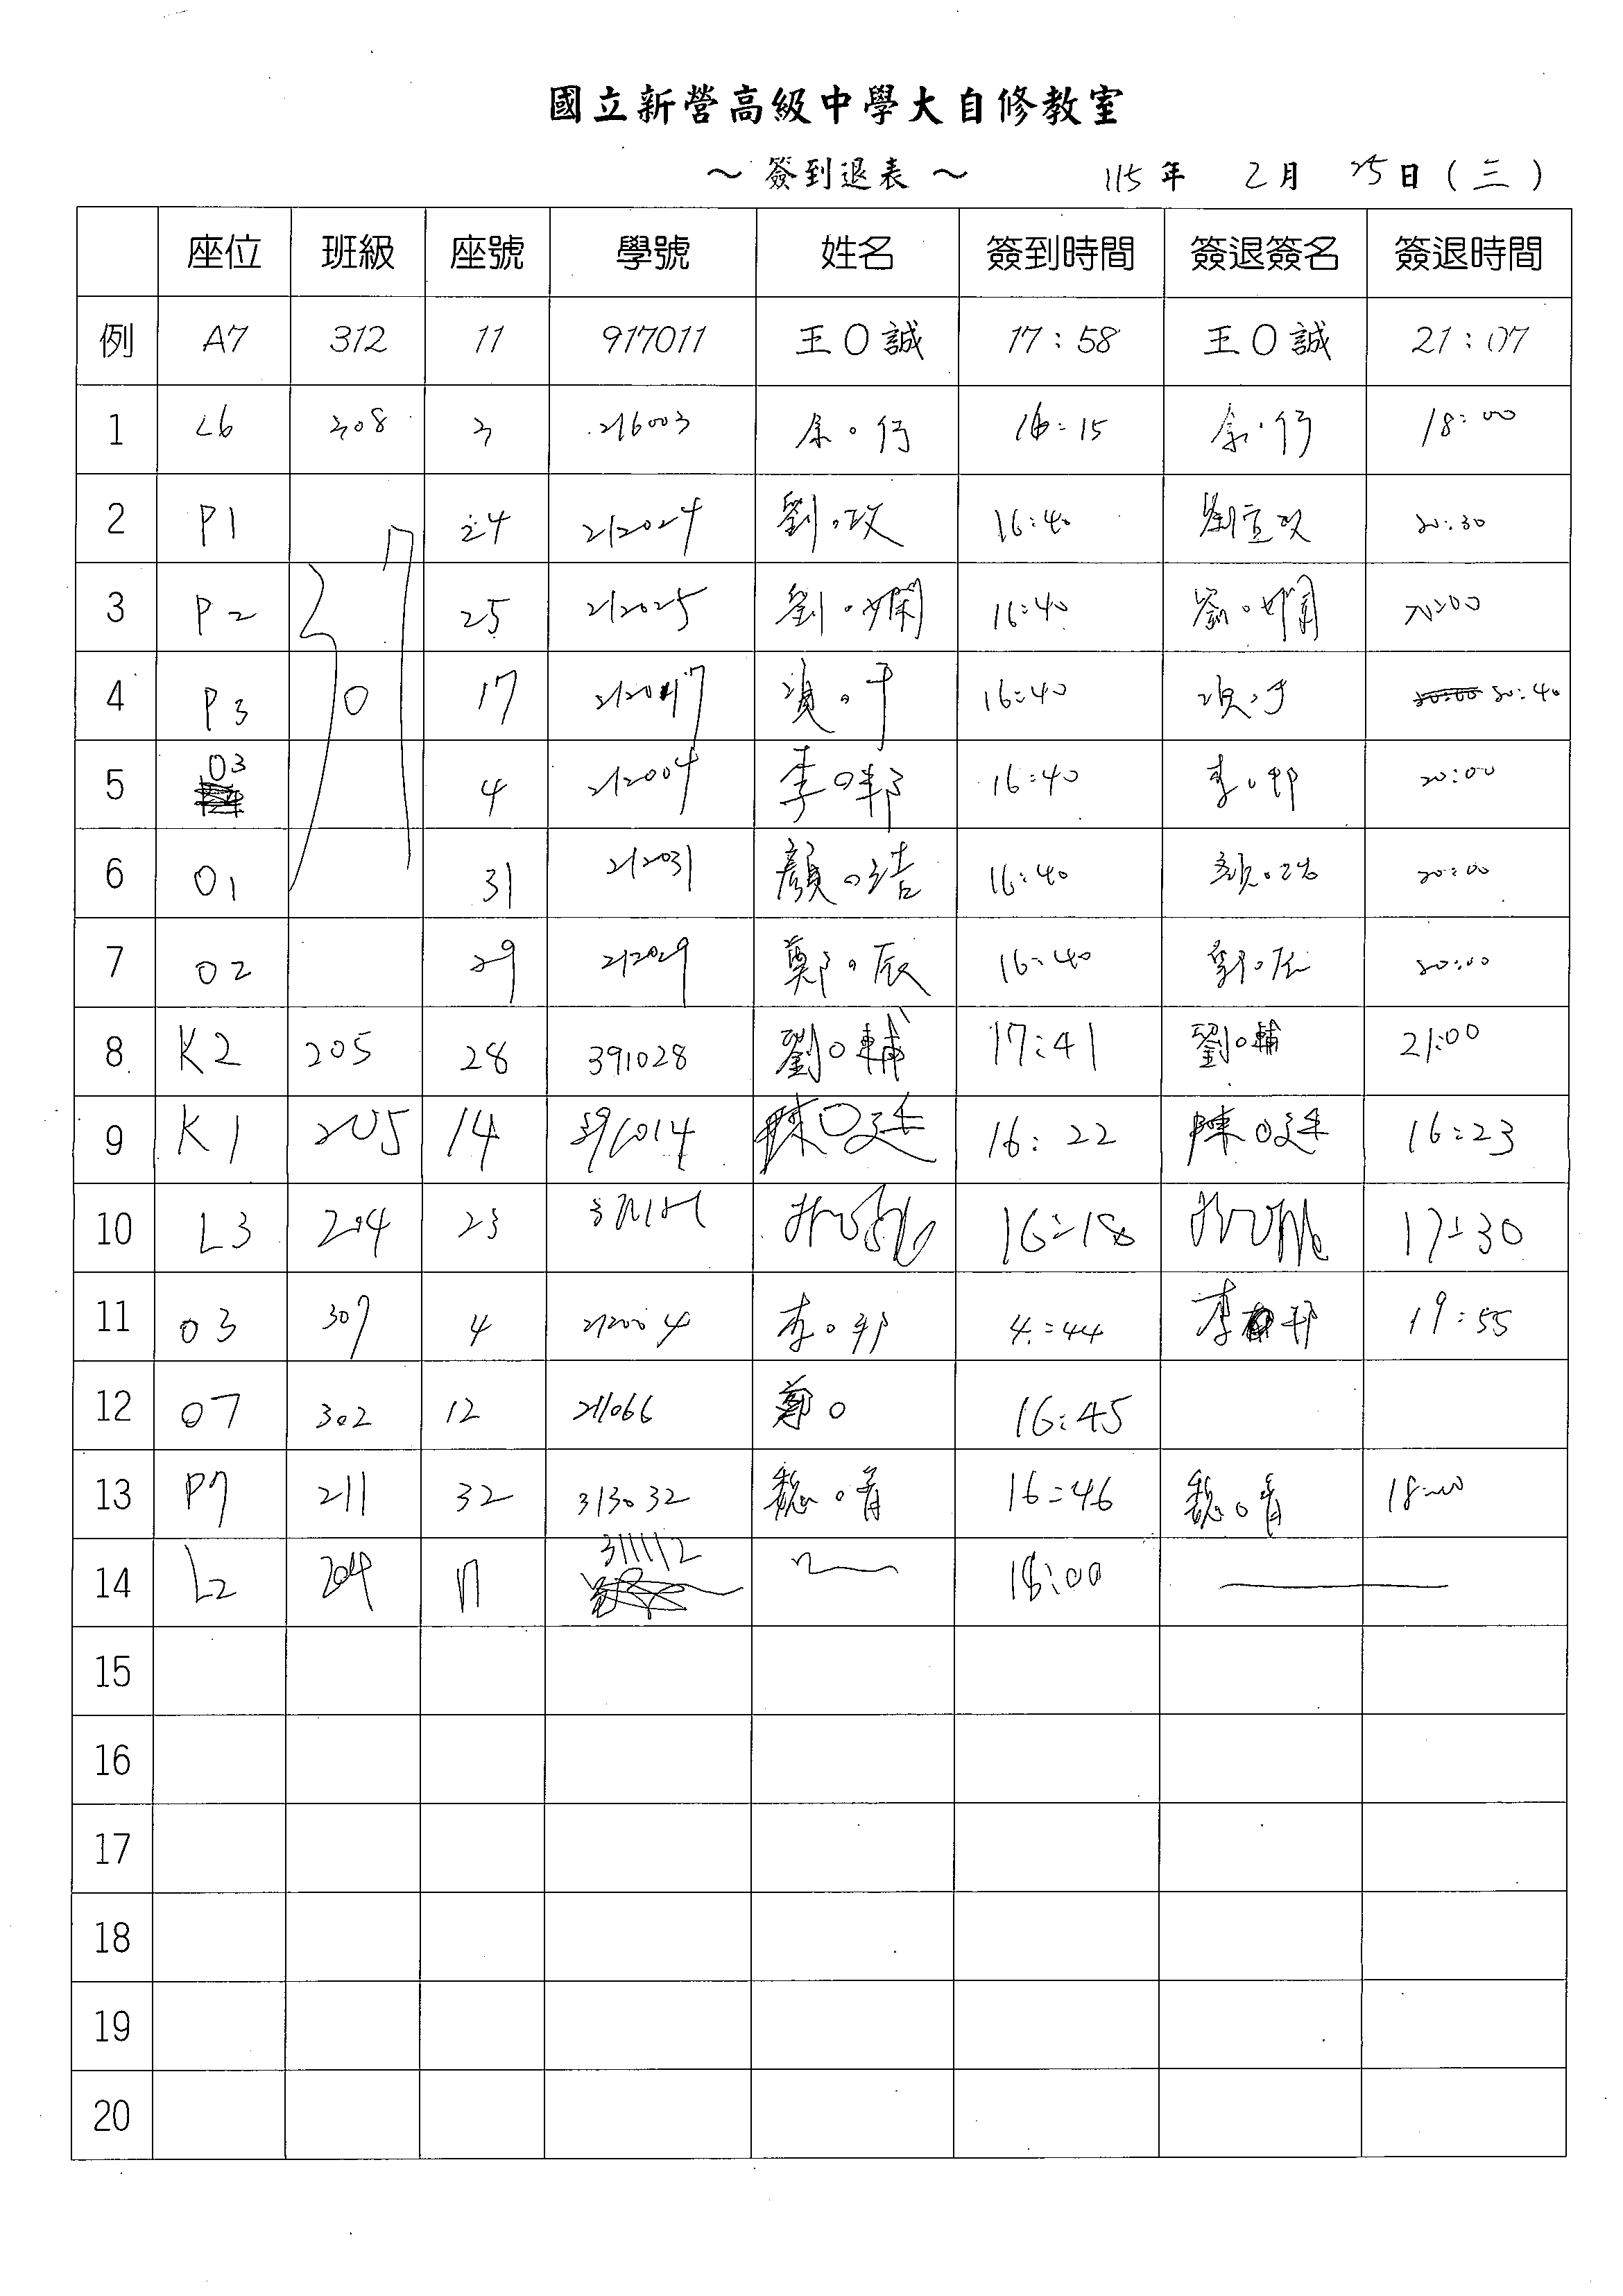 國立新營高級中學大自修教室
～ 簽到退表 ～ 115 年 2 月 25 日 ( 三 )
座位 班級 座號 學號 姓名 簽到時間 簽退簽名 簽退時間
例 A7 312 11 917011 王O誠 17:58 王O誠 21:07
1 L6 308 3 216003 余。行 16:15 余。行 18:00
2 P1 24 212024 劉。玟 16:40 20:30
3 P2 25 212025 劉。嫻 16:40 劉。嫻 20:00
4 P3 307 17 212017 16:40 20:40
5 03 4 212004 李O邦 16:40 李。邦 20:00
6 01 31 212031 顏。 16:40 20:00
7 02 29 212029 鄭。辰 16:40 20:00
8 K2 205 28 391028 劉O輔 17:41 劉O輔 21:00
9 K1 205 14 陳O廷 16:22 陳O廷 16:23
10 L3 204 23 16:18 17:30
11 03 307 4 212004 李。邦 4:44 李 邦 19:55
12 07 302 12 211066 鄭O 16:45
13 P7 211 32 313032 魏。青 16:46 魏O青 18:00
14 L2 204 311112 18:00
15
16
17
18
19
20